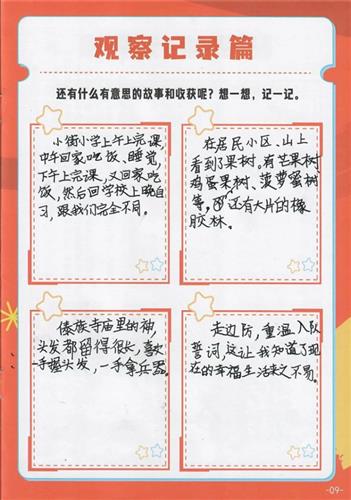 观察记录篇
还有什么有意思的故事和收获呢？想一想，记一记。
小街小学上午上完课，
中午回家吃饭、睡觉，
下午上完课，又回家吃
饭，然后回学校上晚自
习，跟我们完全不同。
在居民小区、山上
看到了果树。有芒果树
鸡蛋果树、菠萝蜜树
等，还有大片的橡
胶林。
傣族寺庙里的神，
头发都留得很长，喜欢
一手握头发，一手拿兵器。
走边防，重温入队
誓词，这让我知道了现
在的幸福生活来之不易。
-09-